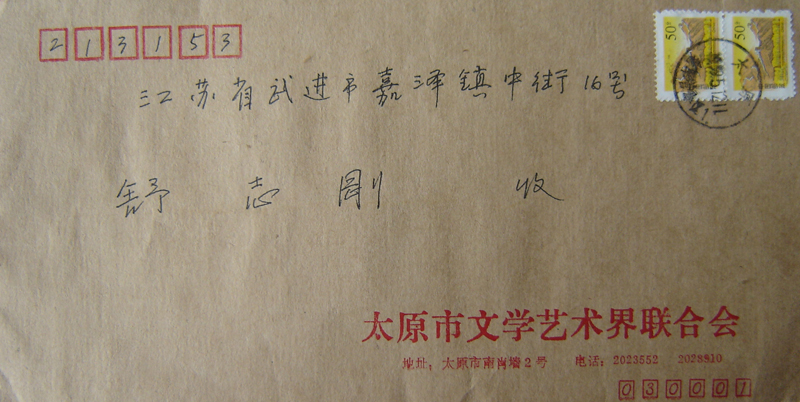 213153
江苏省武进市嘉泽镇中街16号
舒志刚 收
50分 50分
太原市文学艺术界联合会
地址：太原市南肖墙2号 电话：2023552 2028810
030001